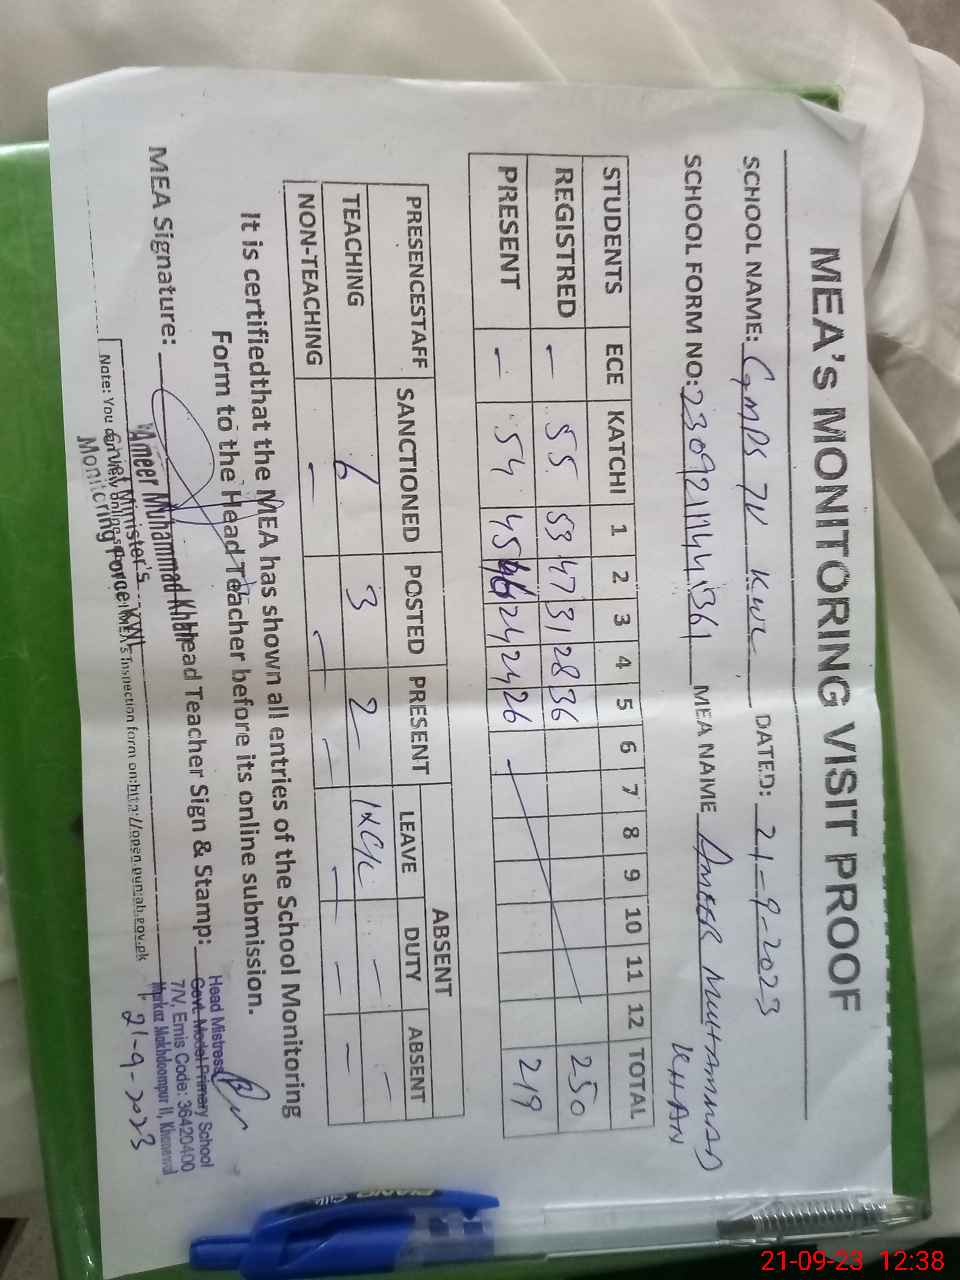 MEA's MONITORING VISIT PROOF
SCHOOL NAME: GMPS 7V KWL DATED: 21-9-2023
SCHOOL FORM NO: MEA NAME AMEER MUHAMMAD KHAN
STUDENTS ECE KATCHI 1 2 3 4 5 6 7 8 9 10 11 12 TOTAL
REGISTRED - 55 53 47 31 28 36 250
PRESENT - 54 45 46 24 24 26 219
PRESENCESTAFF SANCTIONED POSTED PRESENT ABSENT
LEAVE DUTY ABSENT
TEACHING 6 3 2 1xC/L - -
NON-TEACHING - - - - - -
It is certifiedthat the MEA has shown all entries of the School Monitoring
Form to the Head Teacher before its online submission.
MEA Signature: Head Teacher Sign & Stamp:
Ameer Muhammad Khan
Chief Minister's
Monitoring Force KWL
Head Mistress
Govt. Model Primary School
7/V, Emis Code: 36420400
Markaz Makhdoompur II, Khanewal
21-9-2023
Note: You can view online MEA's Inspection form on:http://open.punjab.gov.pk
PIANO
21-09-23 12:38